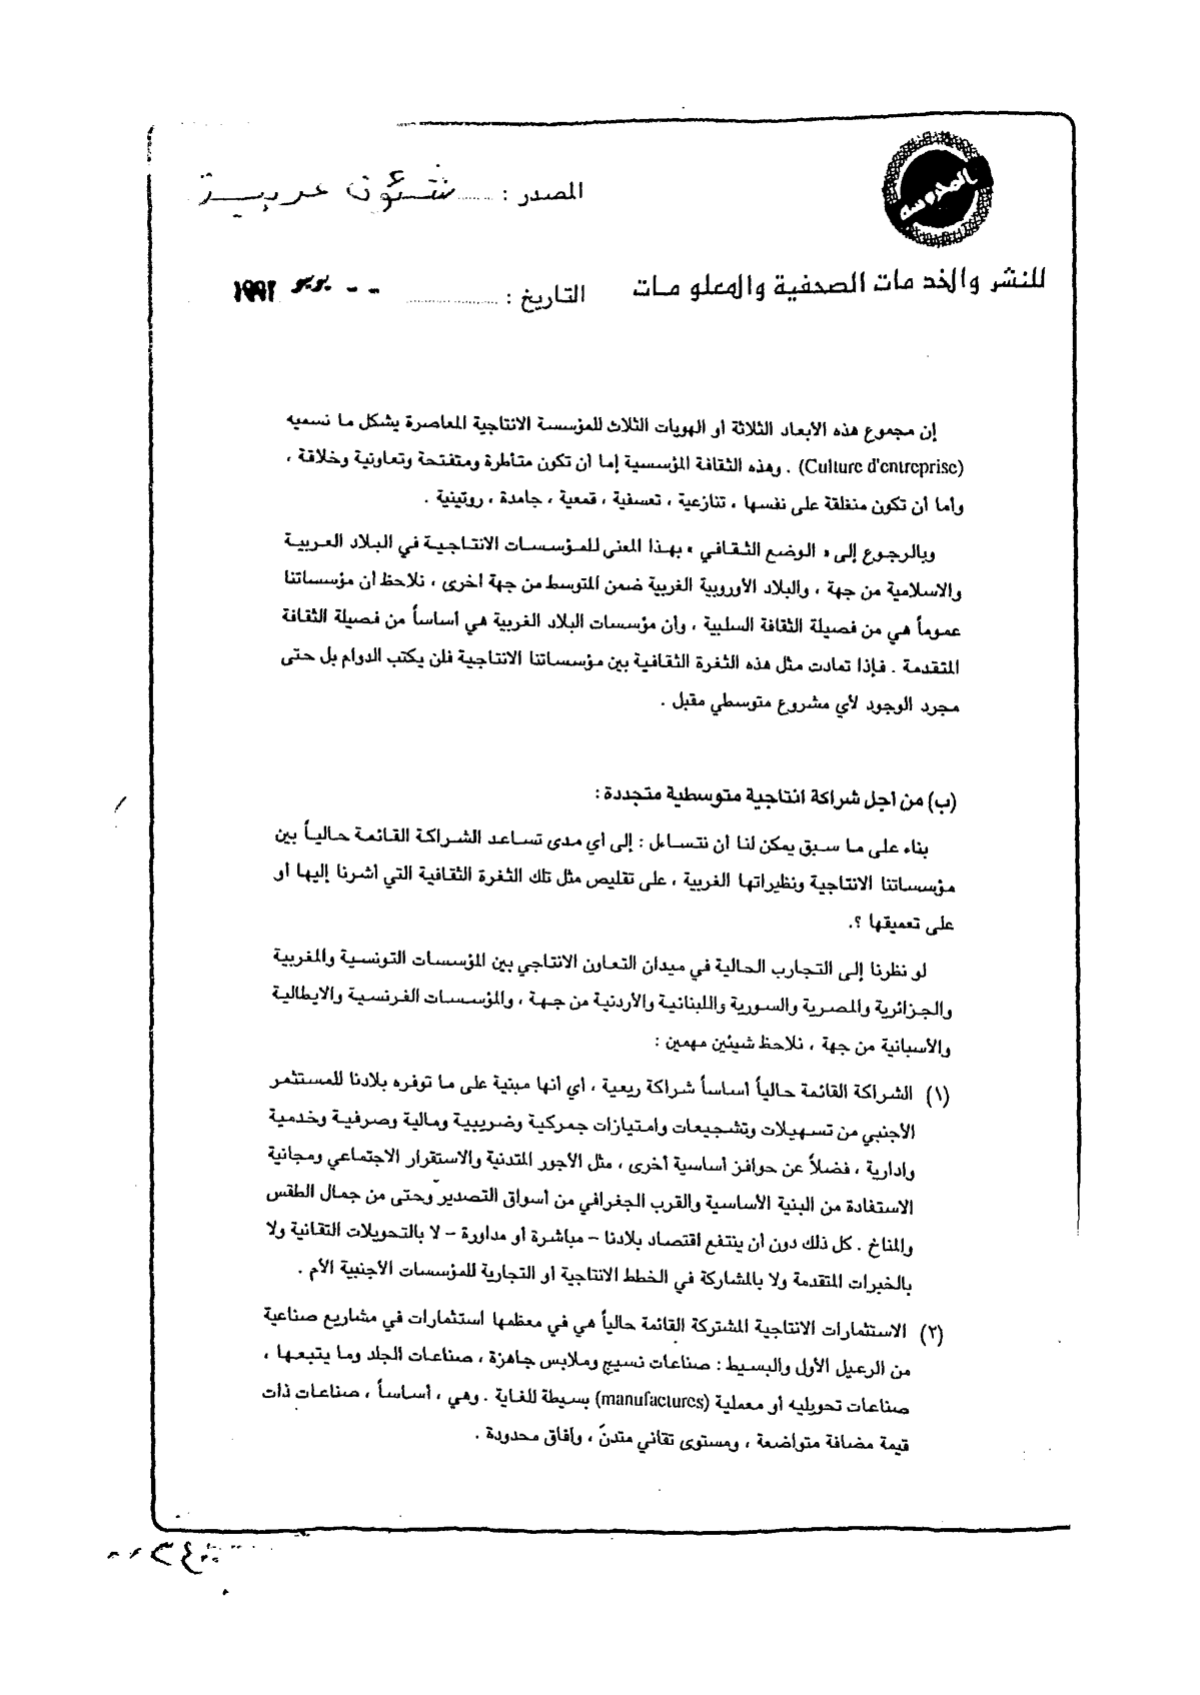 المحروسه
المصدر : شئون عربية
للنشر والخدمات الصحفية والمعلومات
التاريخ : -- يونيو ١٩٩٢
إن مجموع هذه الأبعاد الثلاثة أو الهويات الثلاث للمؤسسة الانتاجية المعاصرة يشكل ما نسميه
(Culture d'entreprise) . وهذه الثقافة المؤسسية إما أن تكون متأطرة ومتفتحة وتعاونية وخلاقة ،
وأما أن تكون منغلقة على نفسها ، تنازعية ، تعسفية ، قمعية ، جامدة ، روتينية .
وبالرجوع إلى « الوضع الثقافي » بهذا المعنى للمؤسسات الانتاجية في البلاد العربية
والاسلامية من جهة ، والبلاد الأوروبية الغربية ضمن المتوسط من جهة أخرى ، نلاحظ أن مؤسساتنا
عموماً هي من فصيلة الثقافة السلبية ، وأن مؤسسات البلاد الغربية هي أساساً من فصيلة الثقافة
المتقدمة . فإذا تمادت مثل هذه الثغرة الثقافية بين مؤسساتنا الانتاجية فلن يكتب الدوام بل حتى
مجرد الوجود لأي مشروع متوسطي مقبل .
(ب) من أجل شراكة انتاجية متوسطية متجددة :
بناء على ما سبق يمكن لنا أن نتساءل : إلى أي مدى تساعد الشراكة القائمة حالياً بين
مؤسساتنا الانتاجية ونظيراتها الغربية ، على تقليص مثل تلك الثغرة الثقافية التي أشرنا إليها أو
على تعميقها ؟.
لو نظرنا إلى التجارب الحالية في ميدان التعاون الانتاجي بين المؤسسات التونسية والمغربية
والجزائرية والمصرية والسورية واللبنانية والأردنية من جهة ، والمؤسسات الفرنسية والايطالية
والأسبانية من جهة ، نلاحظ شيئين مهمين :
(١) الشراكة القائمة حالياً أساساً شراكة ريعية ، أي أنها مبنية على ما توفره بلادنا للمستثمر
الأجنبي من تسهيلات وتشجيعات وامتيازات جمركية وضريبية ومالية وصرفية وخدمية
وإدارية ، فضلاً عن حوافز أساسية أخرى ، مثل الأجور المتدنية والاستقرار الاجتماعي ومجانية
الاستفادة من البنية الأساسية والقرب الجغرافي من أسواق التصدير وحتى من جمال الطقس
والمناخ . كل ذلك دون أن ينتفع اقتصاد بلادنا – مباشرة أو مداورة – لا بالتحويلات التقانية ولا
بالخبرات المتقدمة ولا بالمشاركة في الخطط الانتاجية أو التجارية للمؤسسات الأجنبية الأم .
(٢) الاستثمارات الانتاجية المشتركة القائمة حالياً هي في معظمها استثمارات في مشاريع صناعية
من الرعيل الأول والبسيط : صناعات نسيج وملابس جاهزة ، صناعات الجلد وما يتبعها ،
صناعات تحويليه أو معملية (manufactures) بسيطة للغاية . وهي ، أساساً ، صناعات ذات
قيمة مضافة متواضعة ، ومستوى تقاني متدنّ ، وآفاق محدودة .